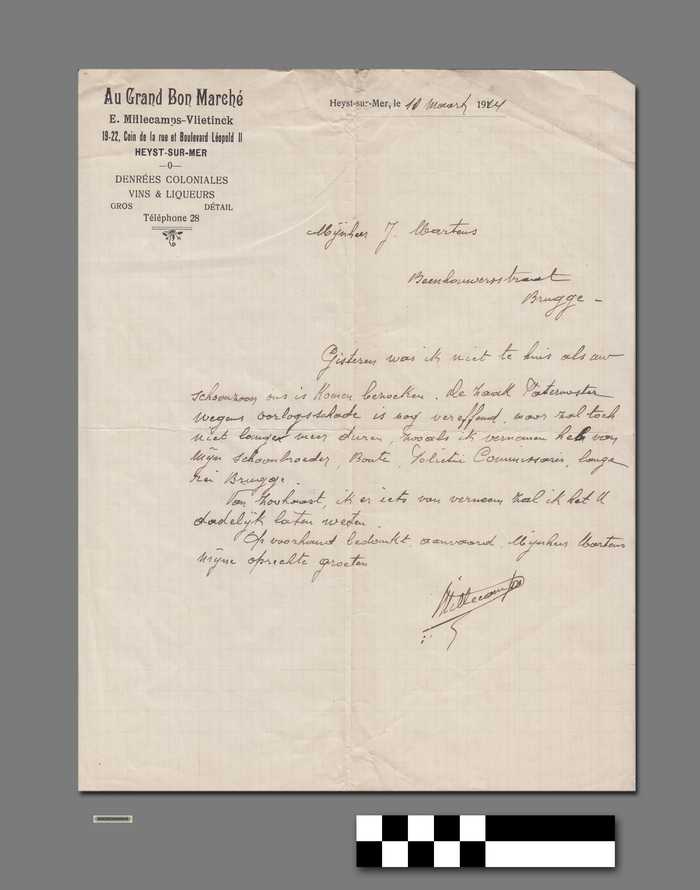 Au Grand Bon Marché
E. Millecamps-Vlietinck
19-22, Coin de la rue et Boulevard Léopold II
HEYST-SUR-MER
—0—
DENRÉES COLONIALES
VINS & LIQUEURS
GROS DÉTAIL
Téléphone 28
Heyst-sur-Mer, le 10 maart 1924
Mijnheer J. Martens
Beenhouwersstraat
Brugge –
Gisteren was ik niet te huis als uw
schoonzoon ons is komen bezoeken. De zaak Paternoster
wegens oorlogsschade is nog vereffend, maar zal toch
niet langer meer duren, zooals ik vernomen heb van
mijn schoonbroeder, Bonte, Policie Commissaris, lange
rei Brugge.
Van zoohaast, ik er iets van verneem zal ik het U
dadelijk laten weten.
Op voorhand bedankt, aanvaard, Mijnheer Martens
mijne oprechte groeten
Millecamps